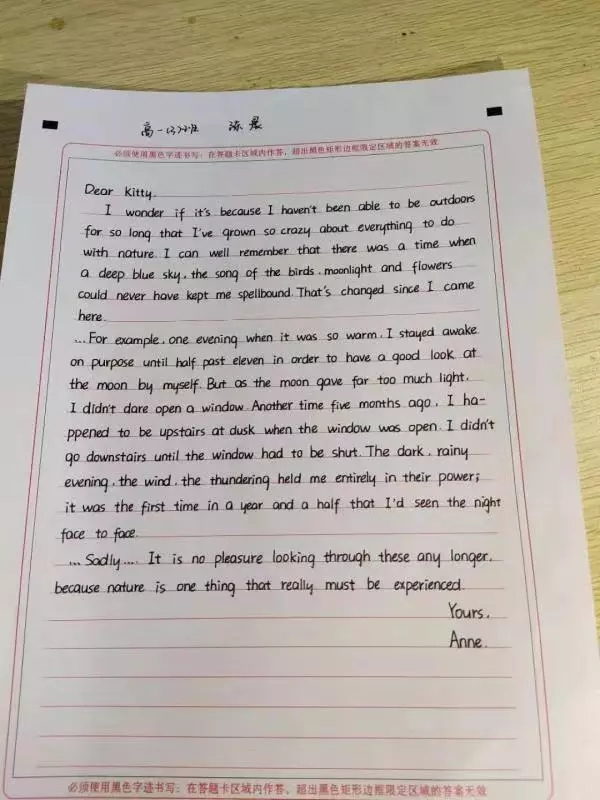 高一(3)班 陈晨
必须使用黑色字迹书写；在答题卡区域内作答，超出黑色矩形边框限定区域的答案无效
Dear Kitty.
I wonder if it's because I haven't been able to be outdoors
for so long that I've grown so crazy about everything to do
with nature. I can well remember that there was a time when
a deep blue sky, the song of the birds, moonlight and flowers
could never have kept me spellbound. That's changed since I came
here.
...For example, one evening when it was so warm, I stayed awake
on purpose until half past eleven in order to have a good look at
the moon by myself. But as the moon gave far too much light,
I didn't dare open a window. Another time five months ago, I ha-
ppened to be upstairs at dusk when the window was open. I didn't
go downstairs until the window had to be shut. The dark, rainy
evening, the wind, the thundering held me entirely in their power;
it was the first time in a year and a half that I'd seen the night
face to face.
...Sadly.... It is no pleasure looking through these any longer,
because nature is one thing that really must be experienced.
Yours,
Anne.
必须使用黑色字迹书写；在答题卡区域内作答，超出黑色矩形边框限定区域的答案无效